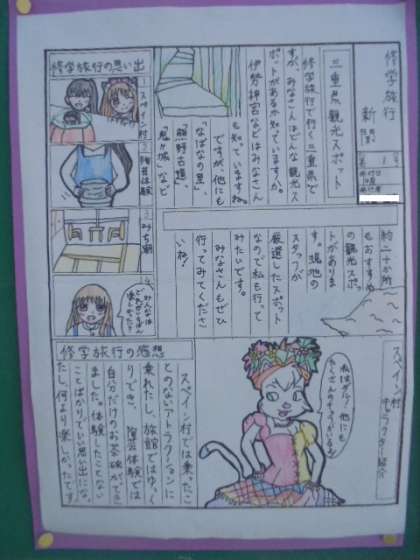 修学旅行
新
三重県観光スポット
修学旅行で行く三重県で
すが、みなさんはどんな観光ス
ポットがあるか知っていますか。
伊勢神宮などはみなさん
も知っていますね。
ですが他にも
「なばなの里」、
「熊野古道」、
「鬼ヶ城」など
約二十か所
もおすすめ
の観光スポッ
トがありま
す。現地の
スタッフが
厳選したスポット
なので私も行って
みたいです。
みなさんもぜひ
行ってみてくださ
いね!
修学旅行の思い出
1 スペイン村
2 陶芸体験
3 みち潮
4
みんなは
どれが一番
楽しかった?
スペイン村
キャラクター紹介
他にも
たくさんのキャラがいるよ
修学旅行の感想
スペイン村では乗ったこ
とのないアトラクションに
乗れたし、旅館ではゆっく
りでき、陶芸体験では
自分だけのお茶碗ができ
ました。体験したことない
ことばかりでいい思い出にな
たし、何より楽しかったです